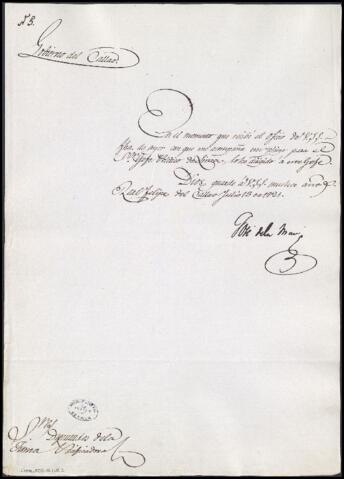 N. 3.
Gobierno del Callao.
En el momento que recibí el oficio de V.S.S.
fha. de ayer con que me acompaña un pliego para el
lo he dirigido a este Gefe.
Dios guarde á V.S.S. muchos años
Real Felipe del Callao Julio 13 de 1821.
José de la Mar
S.res Diputados de la
Junta Pacificadora